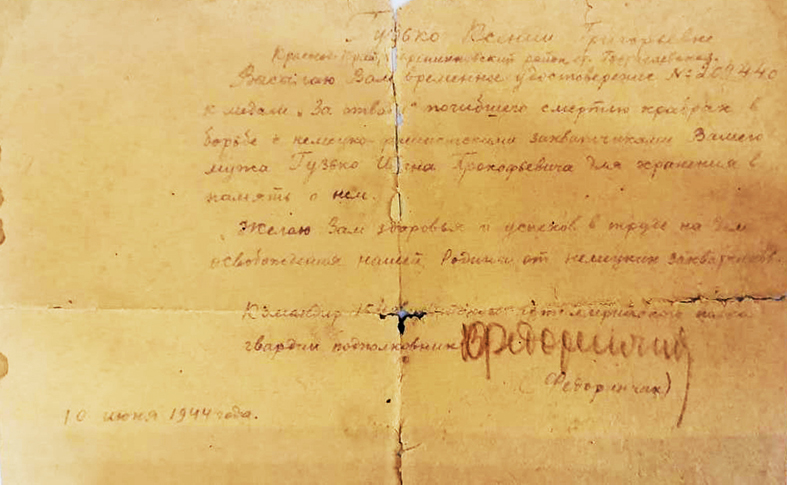 Гузько Ксении Григорьевне
Краснод. Край, район, ст.
Высылаю Вам временное удостоверение № 209440
к медали „За отвагу" погибшего смертью храбрых в
борьбе с немецко-фашистскими захватчиками Вашего
мужа Гузько Ивана Прокофьевича для хранения в
память о нем.
Желаю Вам здоровья и успехов в труде на
освобождения нашей Родины от немецких захватчиков.
Командир артиллерийского полка
гвардии подполковник
(Федоринчик)
10 июня 1944 года.